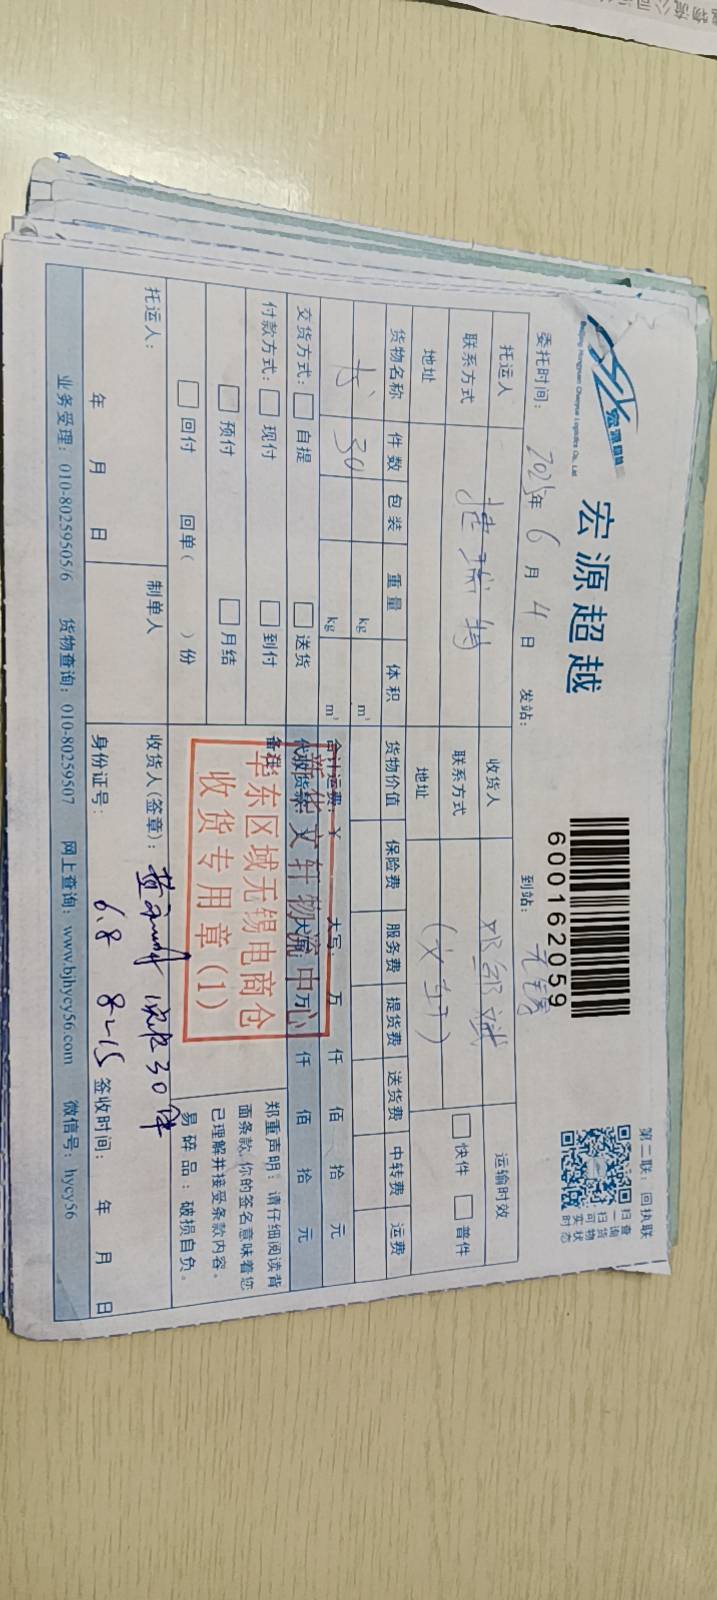 宏源超越
Beijing Hongyuan Chaoyue Logistics Co., Ltd
宏源超越
600162059
第二联：回执联
扫一扫可实时
查询货物状态
委托时间：2025年6月4日
发站：
到站：无锡
托运人
收货人
运输时效
联系方式
捷瑞特
联系方式
快件 普件
地址
地址
货物名称 件数 包装 重量 体积 货物价值 保险费 服务费 提货费 送货费 中转费 运费
书 30 kg m³
kg m³
合计运费：¥ 大写： 万 仟 佰 拾 元
交货方式： 自提 送货
代收货款： 万 仟 佰 拾 元
付款方式： 现付 到付
备注：
预付 月结
回付 回单( )份
新华文轩物流中心
华东区域无锡电商仓
收货专用章(1)
郑重声明：请仔细阅读背
面条款,你的签名意味着您
已理解并接受条款内容。
易碎品：破损自负。
托运人：
制单人
收货人(签章)：
30件
年 月 日
身份证号：
6.8 8-15
签收时间： 年 月 日
业务受理：010-80259505/6 货物查询：010-80259507 网上查询：www.bjhycy56.com 微信号：hycy56